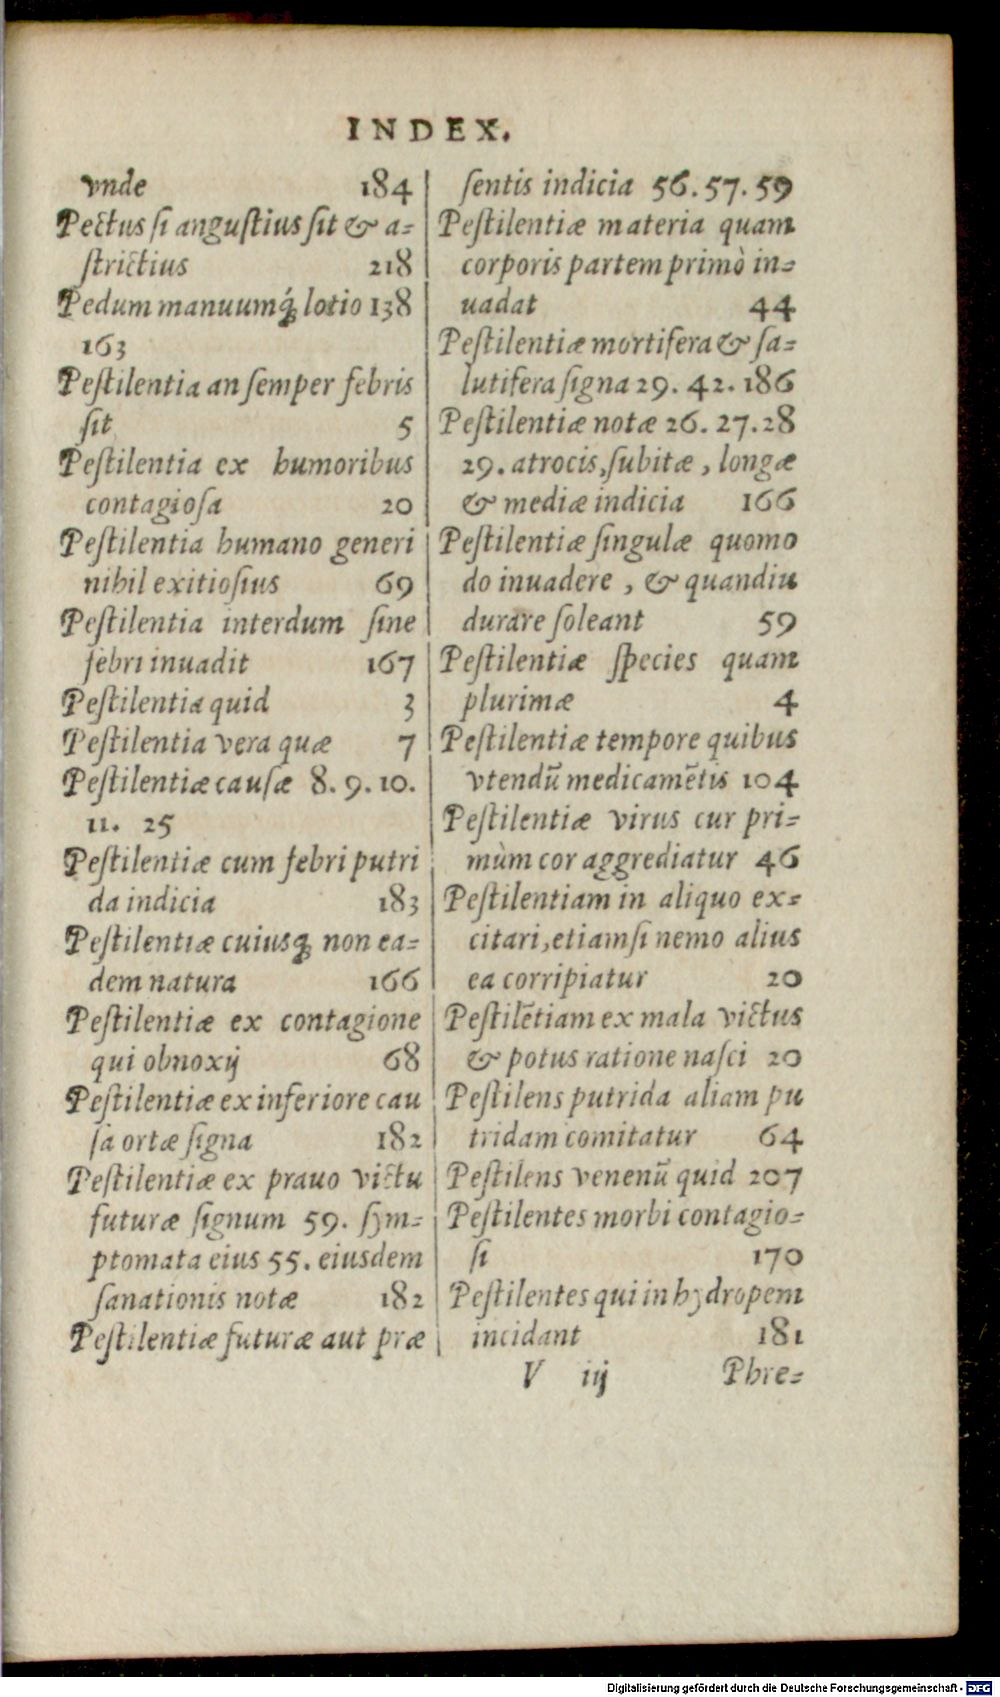 INDEX.
vnde 184
Pectus ſi anguſtius ſit & a-
ſtrictius 218
Pedum manuumq́ꝫ lotio 138
163
Peſtilentia an ſemper febris
ſit 5
Peſtilentia ex humoribus
contagioſa 20
Peſtilentia humano generi
nihil exitioſius 69
Peſtilentia interdum ſine
febri inuadit 167
Peſtilentia quid 3
Peſtilentia vera quæ 7
Peſtilentiæ cauſæ 8. 9. 10.
11. 25
Peſtilentiæ cum febri putri
da indicia 183
Peſtilentiæ cuiusqꝫ non ea-
dem natura 166
Peſtilentiæ ex contagione
qui obnoxij 68
Peſtilentiæ ex inferiore cau
ſa ortæ ſigna 182
Peſtilentiæ ex prauo victu
futuræ ſignum 59. ſym-
ptomata eius 55. eiusdem
ſanationis notæ 182
Peſtilentiæ futuræ aut præ
ſentis indicia 56. 57. 59
Peſtilentiæ materia quam
corporis partem primò in-
uadat 44
Peſtilentiæ mortifera & ſa-
lutifera ſigna 29. 42. 186
Peſtilentiæ notæ 26. 27. 28
29. atrocis, ſubitæ, longæ
& mediæ indicia 166
Peſtilentiæ ſingulæ quomo
do inuadere, & quandiu
durare ſoleant 59
Peſtilentiæ ſpecies quam
plurimæ 4
Peſtilentiæ tempore quibus
vtendū medicamētis 104
Peſtilentiæ virus cur pri-
mùm cor aggrediatur 46
Peſtilentiam in aliquo ex-
citari, etiamſi nemo alius
ea corripiatur 20
Peſtilētiam ex mala victus
& potus ratione naſci 20
Peſtilens putrida aliam pu
tridam comitatur 64
Peſtilens venenū quid 207
Peſtilentes morbi contagio-
ſi 170
Peſtilentes qui in hydropem
incidant 181
V iij Phre-
Digitalisierung gefördert durch die Deutsche Forschungsgemeinschaft - DFG